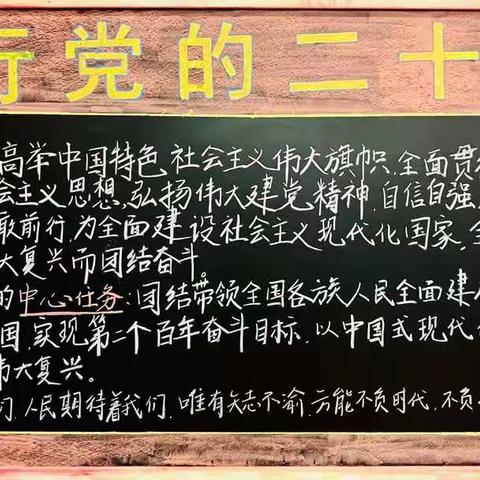 行党的二十
高举中国特色社会主义伟大旗帜,全面贯
会主义思想,弘扬伟大建党精神,自信自强,
敢前行,为全面建设社会主义现代化国家,全
大复兴而团结奋斗。
的中心任务:团结带领全国各族人民全面建
国,实现第二个百年奋斗目标,以中国式现代
伟大复兴。
们,人民期待着我们,唯有矢志不渝,方能不负时代,不负